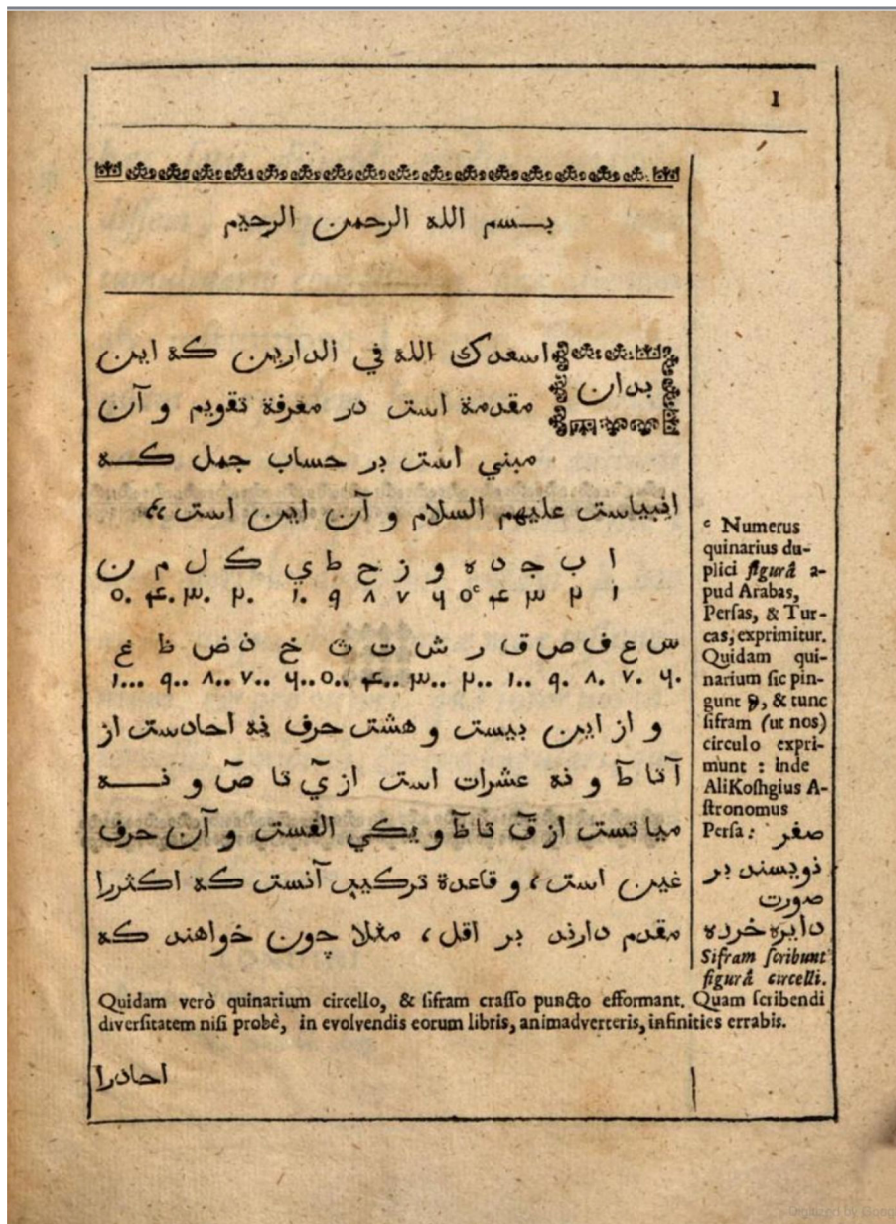 1
بسم الله الرحمن الرحيم
بدان اسعدك الله في الدارين كه اين
مقدمة است در معرفة تقويم و آن
مبني است بر حساب جمل كه
انبياست عليهم السلام و آن اين است
ا ب ج د ه و ز ح ط ي ك ل م ن
۱ ۲ ۳ ۴ ۵ᶜ ۶ ۷ ۸ ۹ ۱۰ ۲۰ ۳۰ ۴۰ ۵۰
س ع ف ص ق ر ش ت ث خ ذ ض ظ غ
۶۰ ۷۰ ۸۰ ۹۰ ۱۰۰ ۲۰۰ ۳۰۰ ۴۰۰ ۵۰۰ ۶۰۰ ۷۰۰ ۸۰۰ ۹۰۰ ۱۰۰۰
و از اين بيست و هشت حرف نه احادست از
آ تا طٓ و نه عشرات است از يٓ تا صٓ و نه
مياتست از قٓ تا ظٓ و يكي الفست و آن حرف
غين است، و قاعدة تركيب آنست كه اكثررا
مقدم دارند بر اقل، مثلا چون خواهند كه
ᶜ Numerus
quinarius du-
plici figurâ a-
pud Arabas,
Persas, & Tur-
cas, exprimitur.
Quidam qui-
narium sic pin-
gunt & tunc
sifram (ut nos)
circulo expri-
munt : inde
Ali Koshgius A-
stronomus
Persa : صفر
نويسند بر
صورت
دايره خرده
Sifram scribunt
figurâ circelli.
Quidam verò quinarium circello, & sifram crasso puncto efformant. Quam scribendi
diversitatem nisi probè, in evolvendis eorum libris, animadverteris, infinities errabis.
احادرا
Digitized by Goo